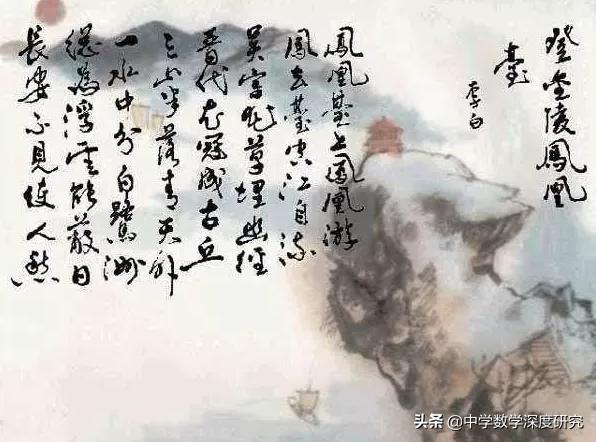 登金陵鳳凰
臺
李白
鳳凰臺上鳳凰游
鳳去臺空江自流
吴宫花草埋幽徑
晋代衣冠成古丘
三山半落青天外
一水中分白鷺洲
總為浮雲能蔽日
長安不見使人愁
头条 @中学数学深度研究